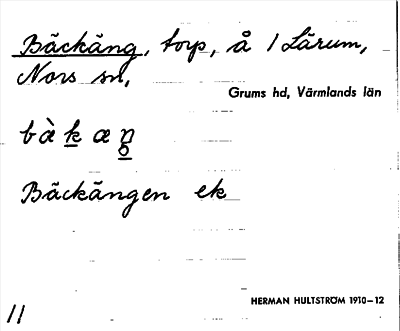 Bäckäng, torp, å 1 Lärum,
Nors sn,
Grums hd, Värmlands län
bàkæn̥
Bäckängen ek
HERMAN HULTSTRÖM 1910–12
11